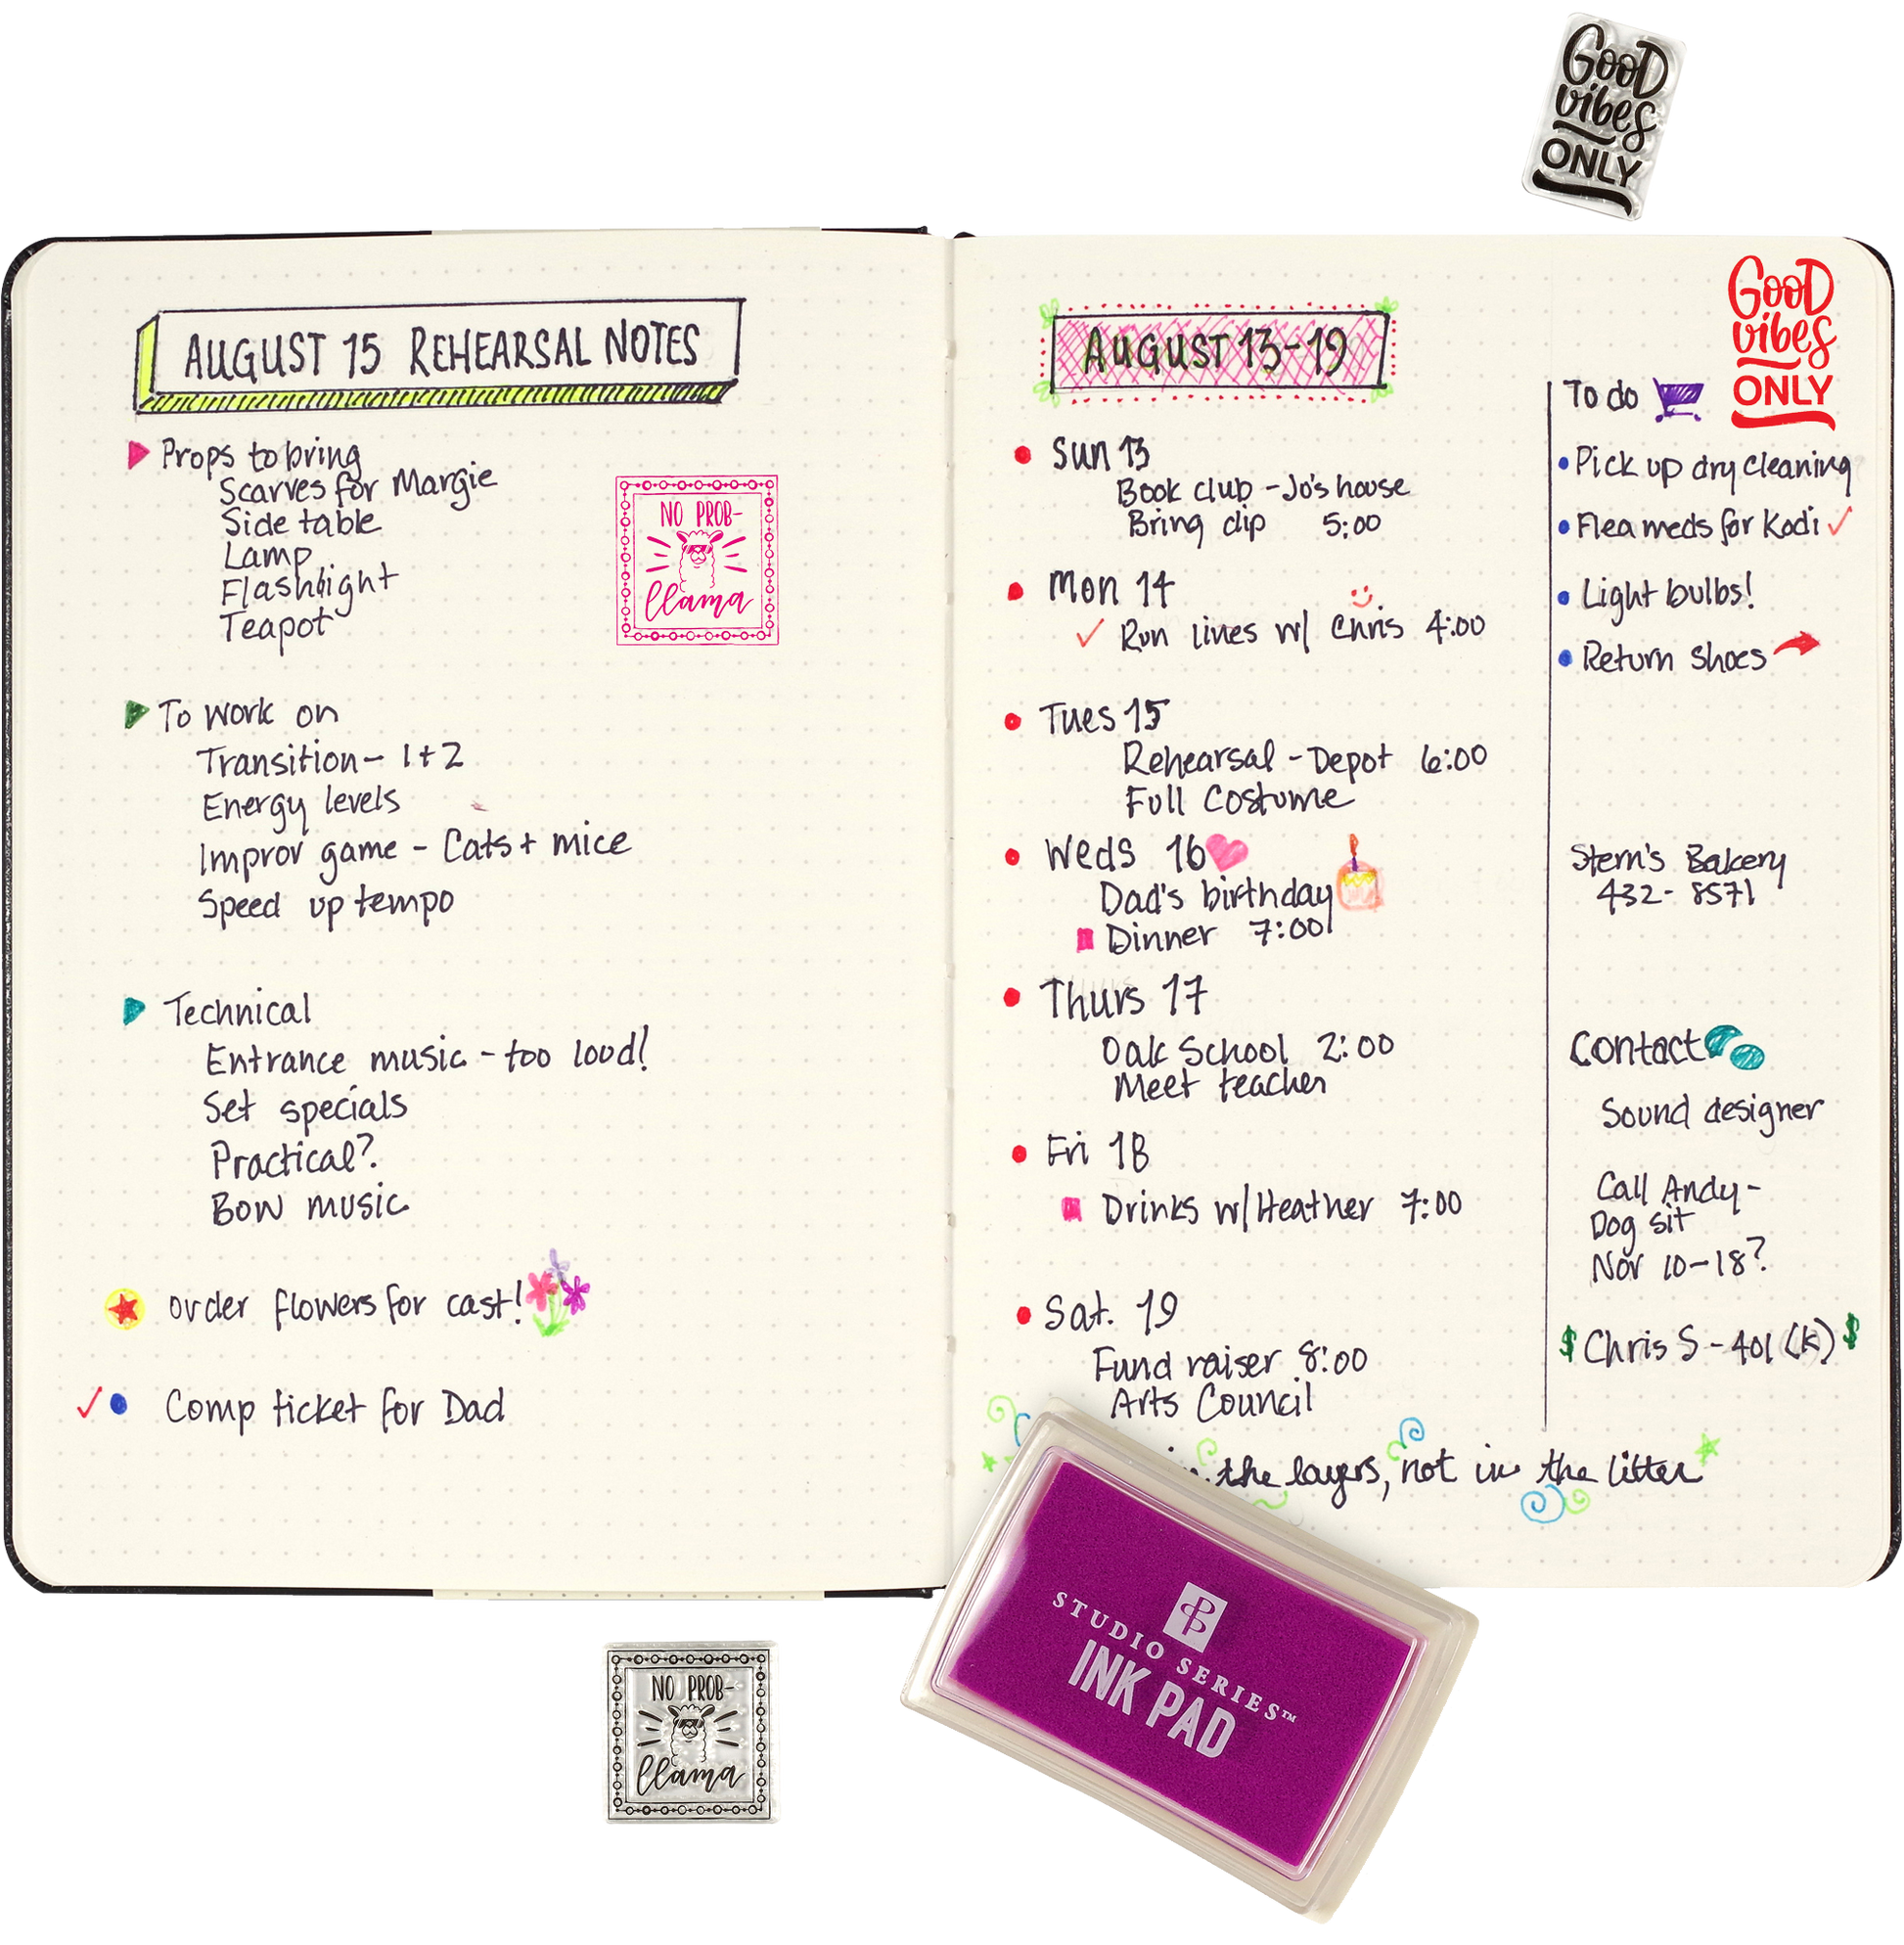 GOOD
vibes
ONLY
AUGUST 15 REHEARSAL NOTES
Props to bring
Scarves for Margie
Side table
Lamp
Flashlight
Teapot
NO PROB-
llama
To work on
Transition- 1+2
Energy levels
Improv game - Cats + mice
Speed up tempo
Technical
Entrance music - too loud!
Set specials
Practical?
Bow music
order flowers for cast!
✓ Comp ticket for Dad
AUGUST 13-19
Sun 13
Book club - Jo's house
Bring dip 5:00
Mon 14
✓ Run lines w/ Chris 4:00
Tues 15
Rehearsal - Depot 6:00
Full Costume
Weds 16
Dad's birthday
Dinner 7:00
Thurs 17
Oak School 2:00
Meet teacher
Fri 18
Drinks w/ Heather 7:00
Sat. 19
Fund raiser 8:00
Arts Council
the layers, not in the litter
GOOD
vibes
ONLY
To do
• Pick up dry cleaning
• Flea meds for Kodi ✓
• Light bulbs!
• Return shoes
Stern's Bakery
432-8571
Contact
Sound designer
Call Andy-
Dog sit
Nov 10-18?
$ Chris S - 401(k) $
NO PROB-
llama
STUDIO SERIES™
INK PAD